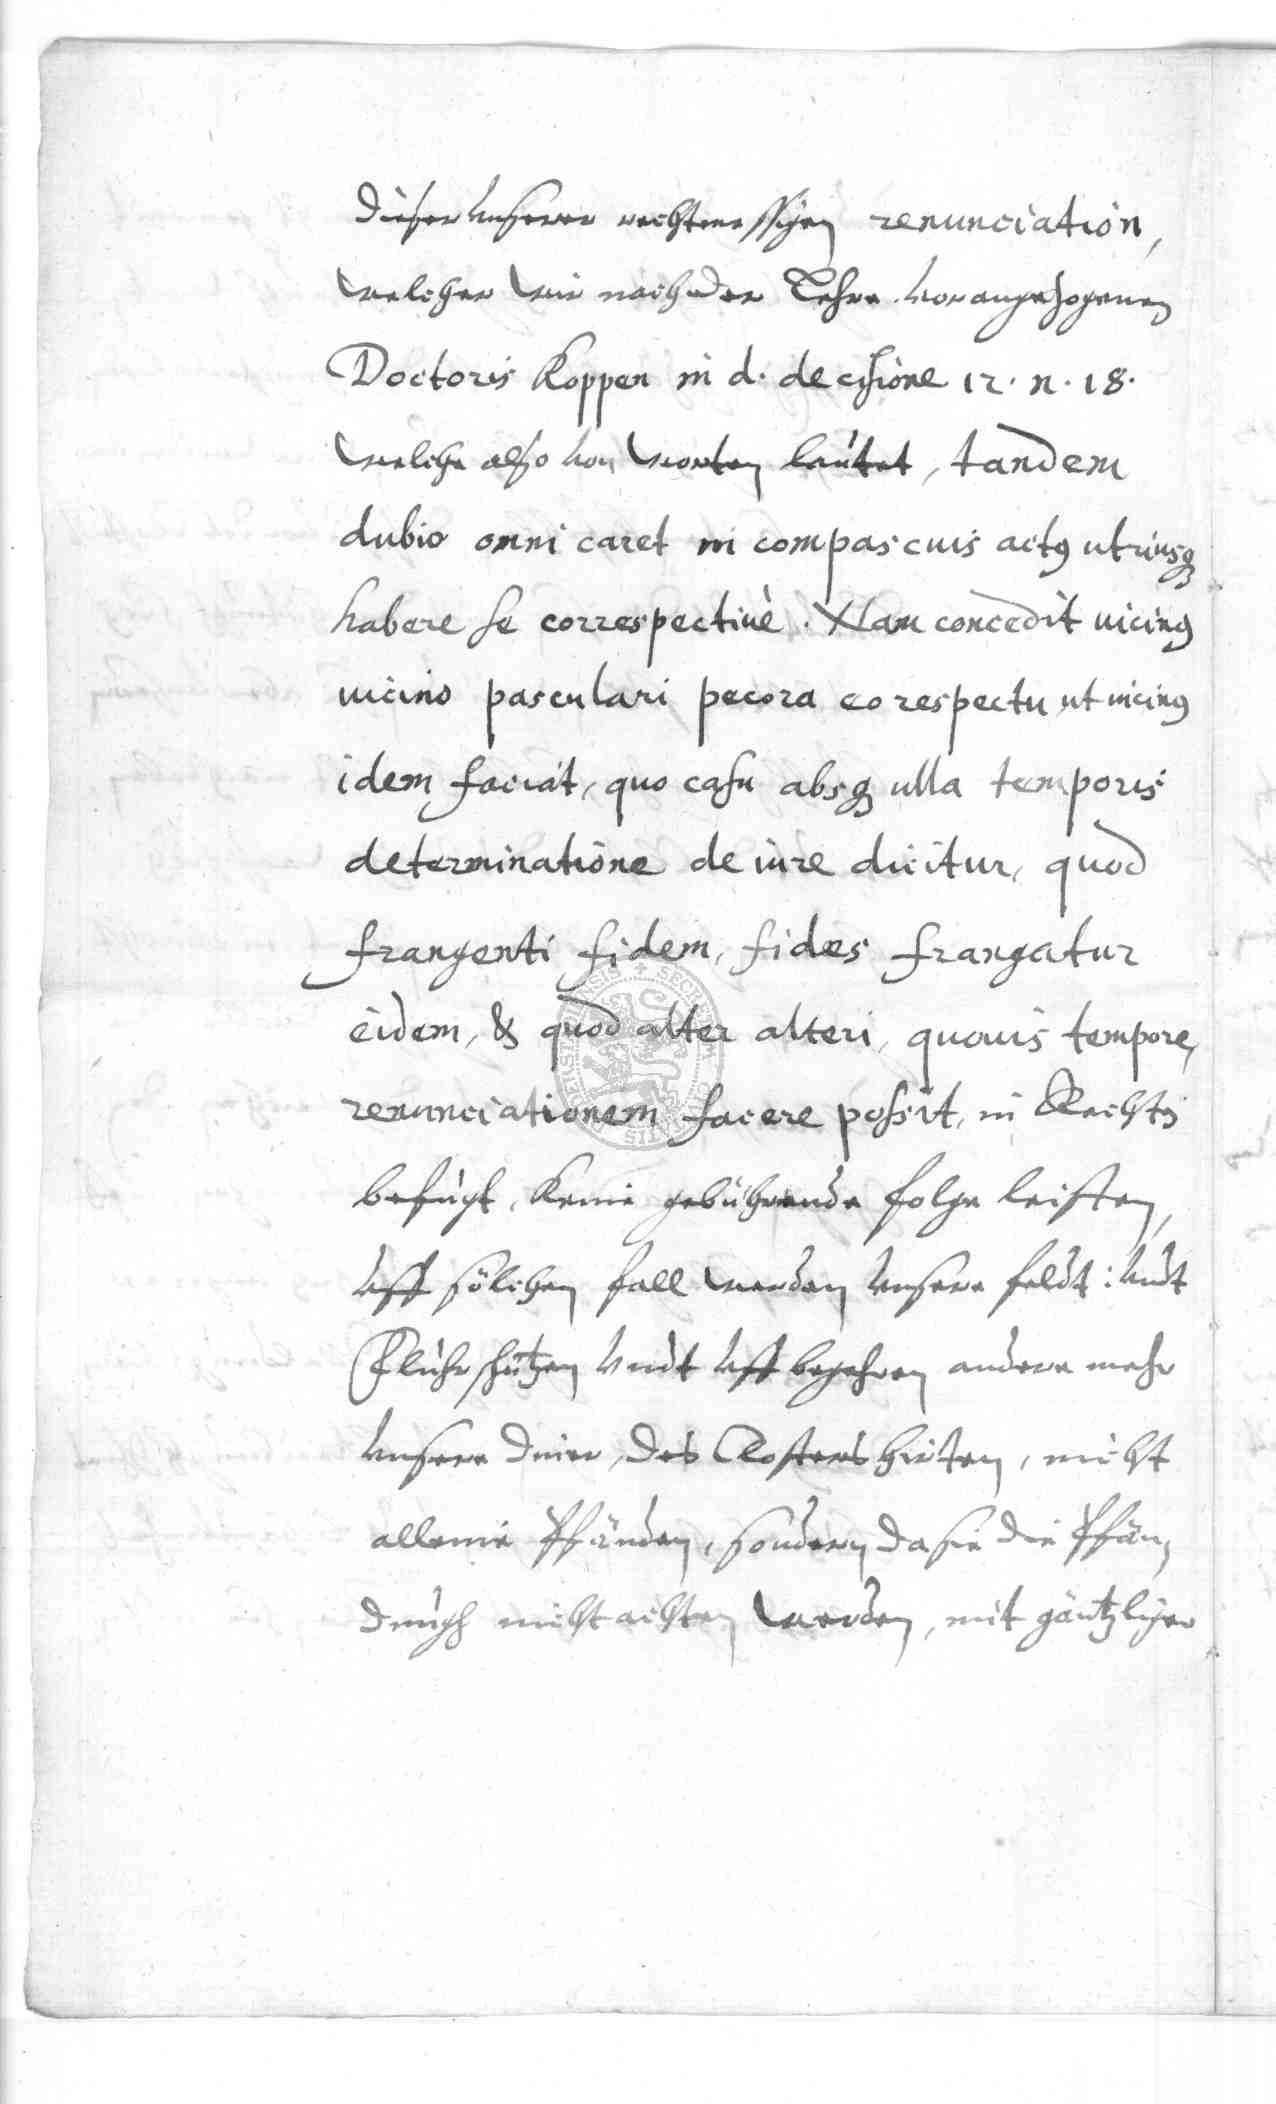 dieser unserer rechtmessigen renunciation,
welcher wir nach der Lehre vorangezogenen
Doctoris Koppen in d. decisione 12. n. 18.
welche also von worten lautet, tandem
dubio omni caret in compascuis actꝰ utriusqꝫ
habere se correspectiuè. Nam concedit uicinꝰ
uicino pasculari pecora eo respectu, ut uicinꝰ
idem faciat, quo casu absqꝫ ulla temporis
determinatione de iure dicitur, quod
frangenti fidem, fides frangatur
eidem, & quod alter alteri, quouis tempore,
renunciationem facere possit, in Rechtẽ
befugt, keine gebührende folge leisten,
uff solchen fall werden unsere feldt: undt
Fluhrschützen undt uff begehren andere mehr
unsere diner, des Closters hirten, nicht
alleine Pfänden, sondern da sie die Pfän-
dungh nicht achten werden, mit gäntzlicher
SECRETUM